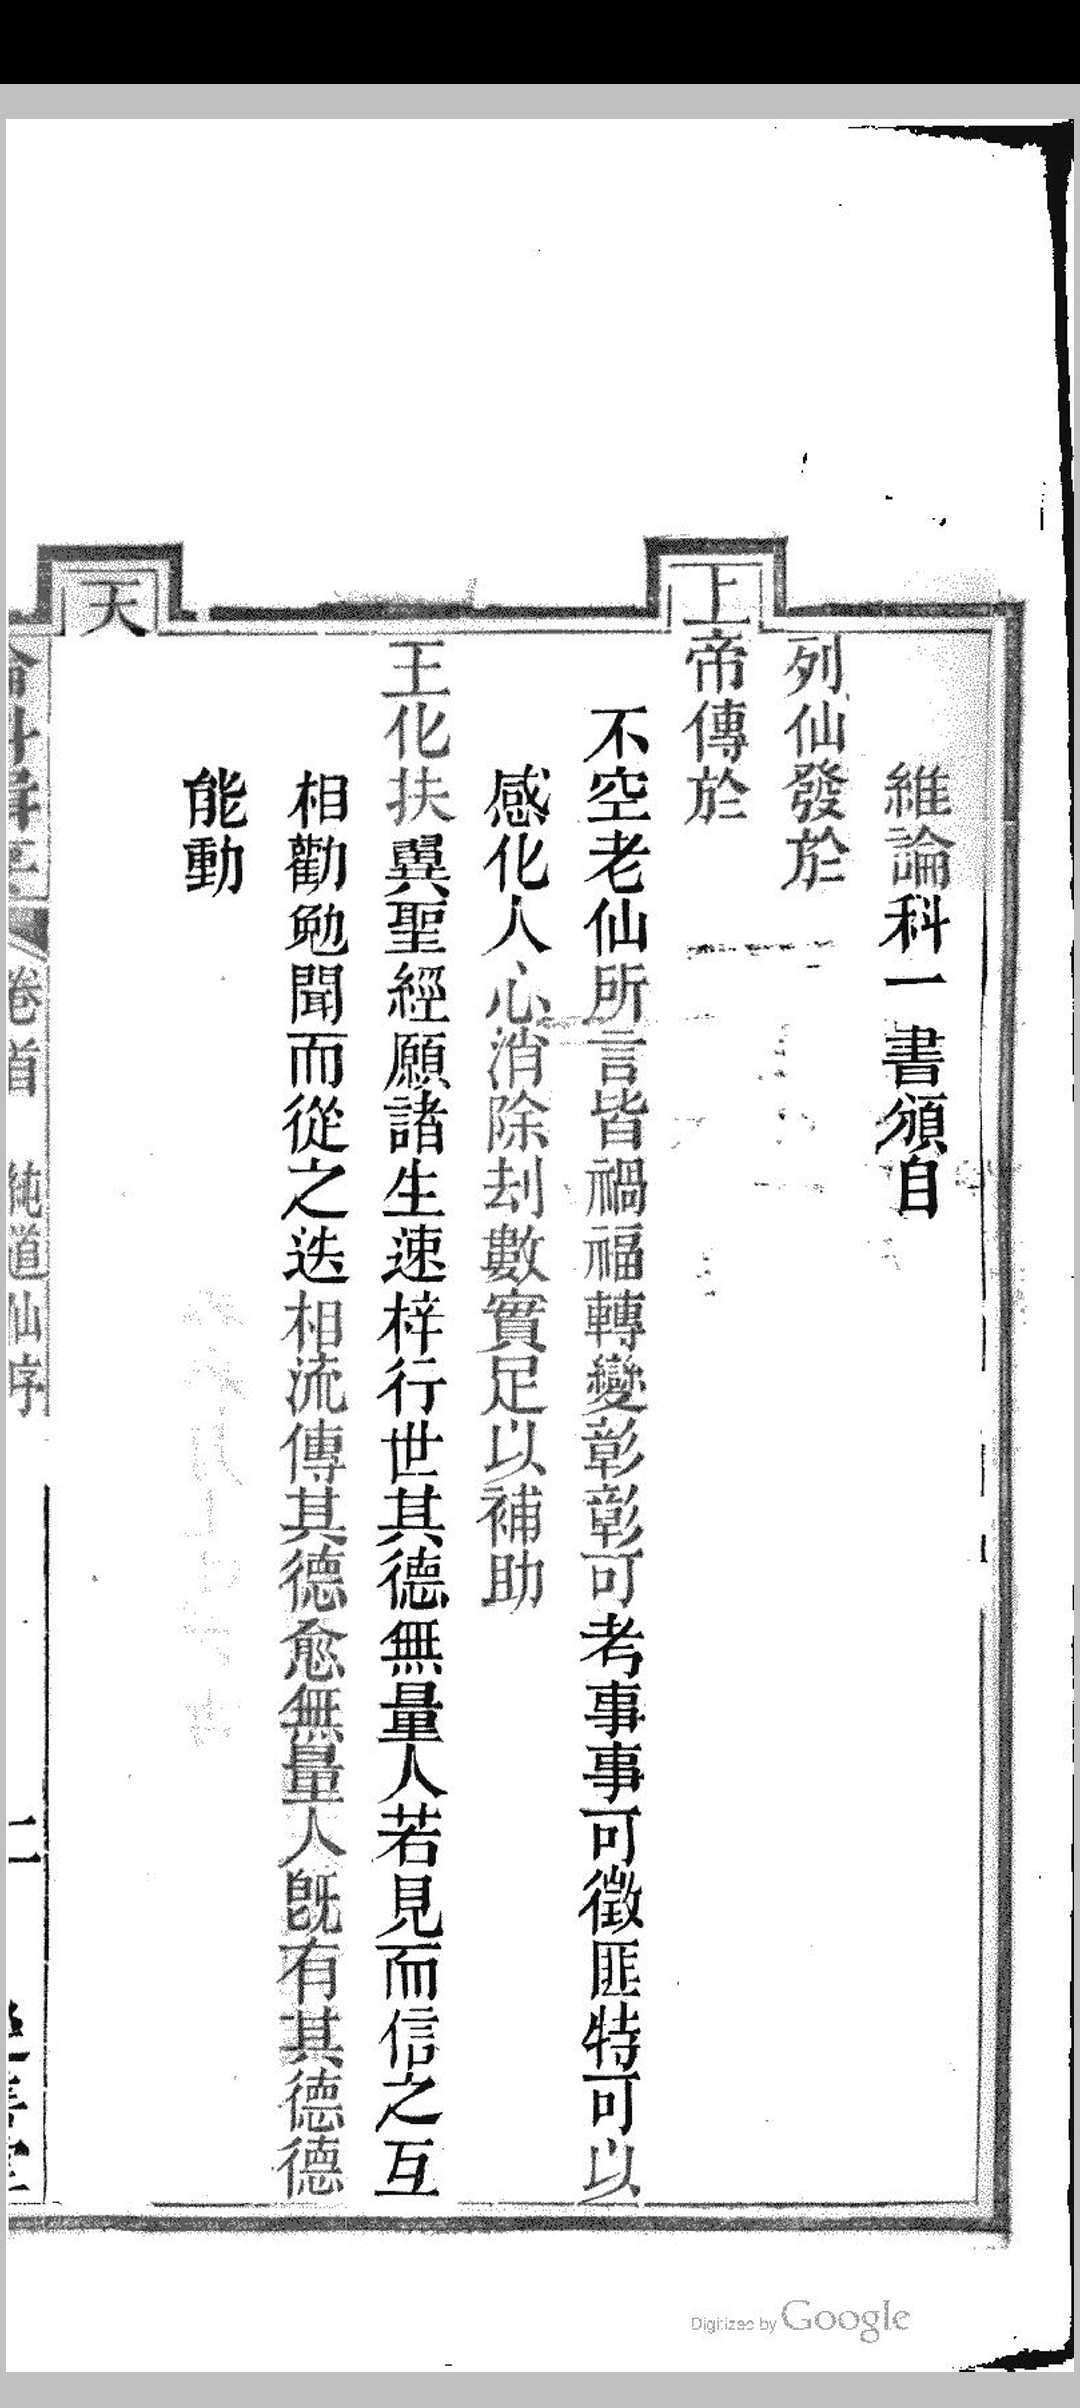 維論科一書頒自
列仙發於
上帝傳於
不空老仙所言皆禍福轉變彰彰可考事事可徵匪特可以
感化人心消除刦數實足以補助
王化扶翼聖經願諸生速梓行世其德無量人若見而信之互
相勸勉聞而從之迭相流傳其德愈無量人旣有其德德
能動
天
卷首 純道仙序
二
Digitized by Google